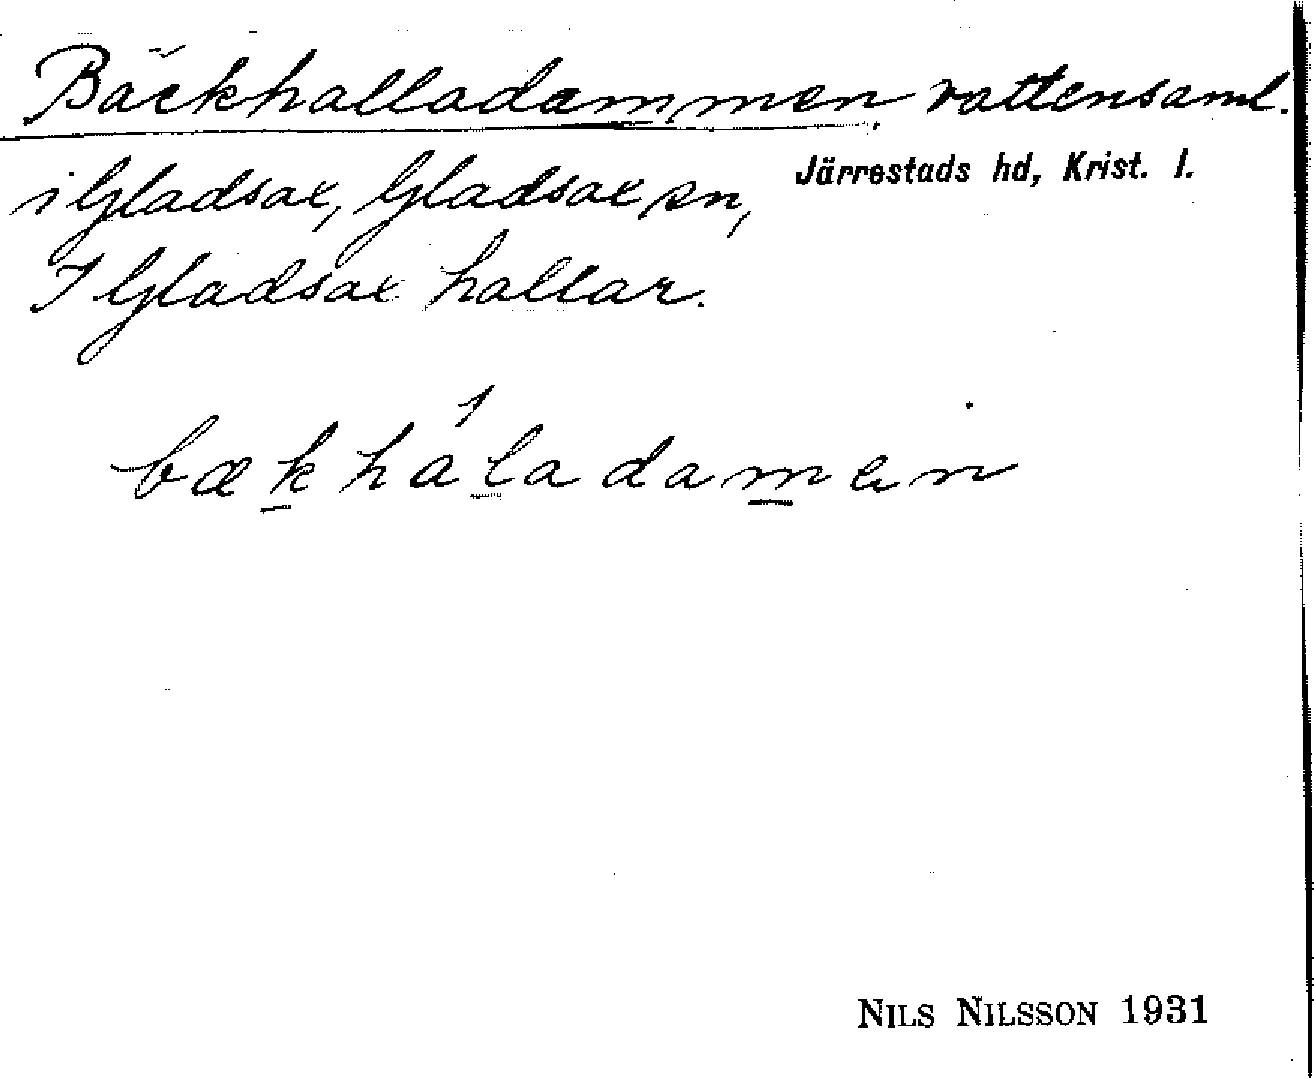 Bäckhalladammen vattensaml.
i Gladsax, Gladsax sn, Järrestads hd, Krist. l.
I Gladsax hallar.
bækháladamen
NILS NILSSON 1931